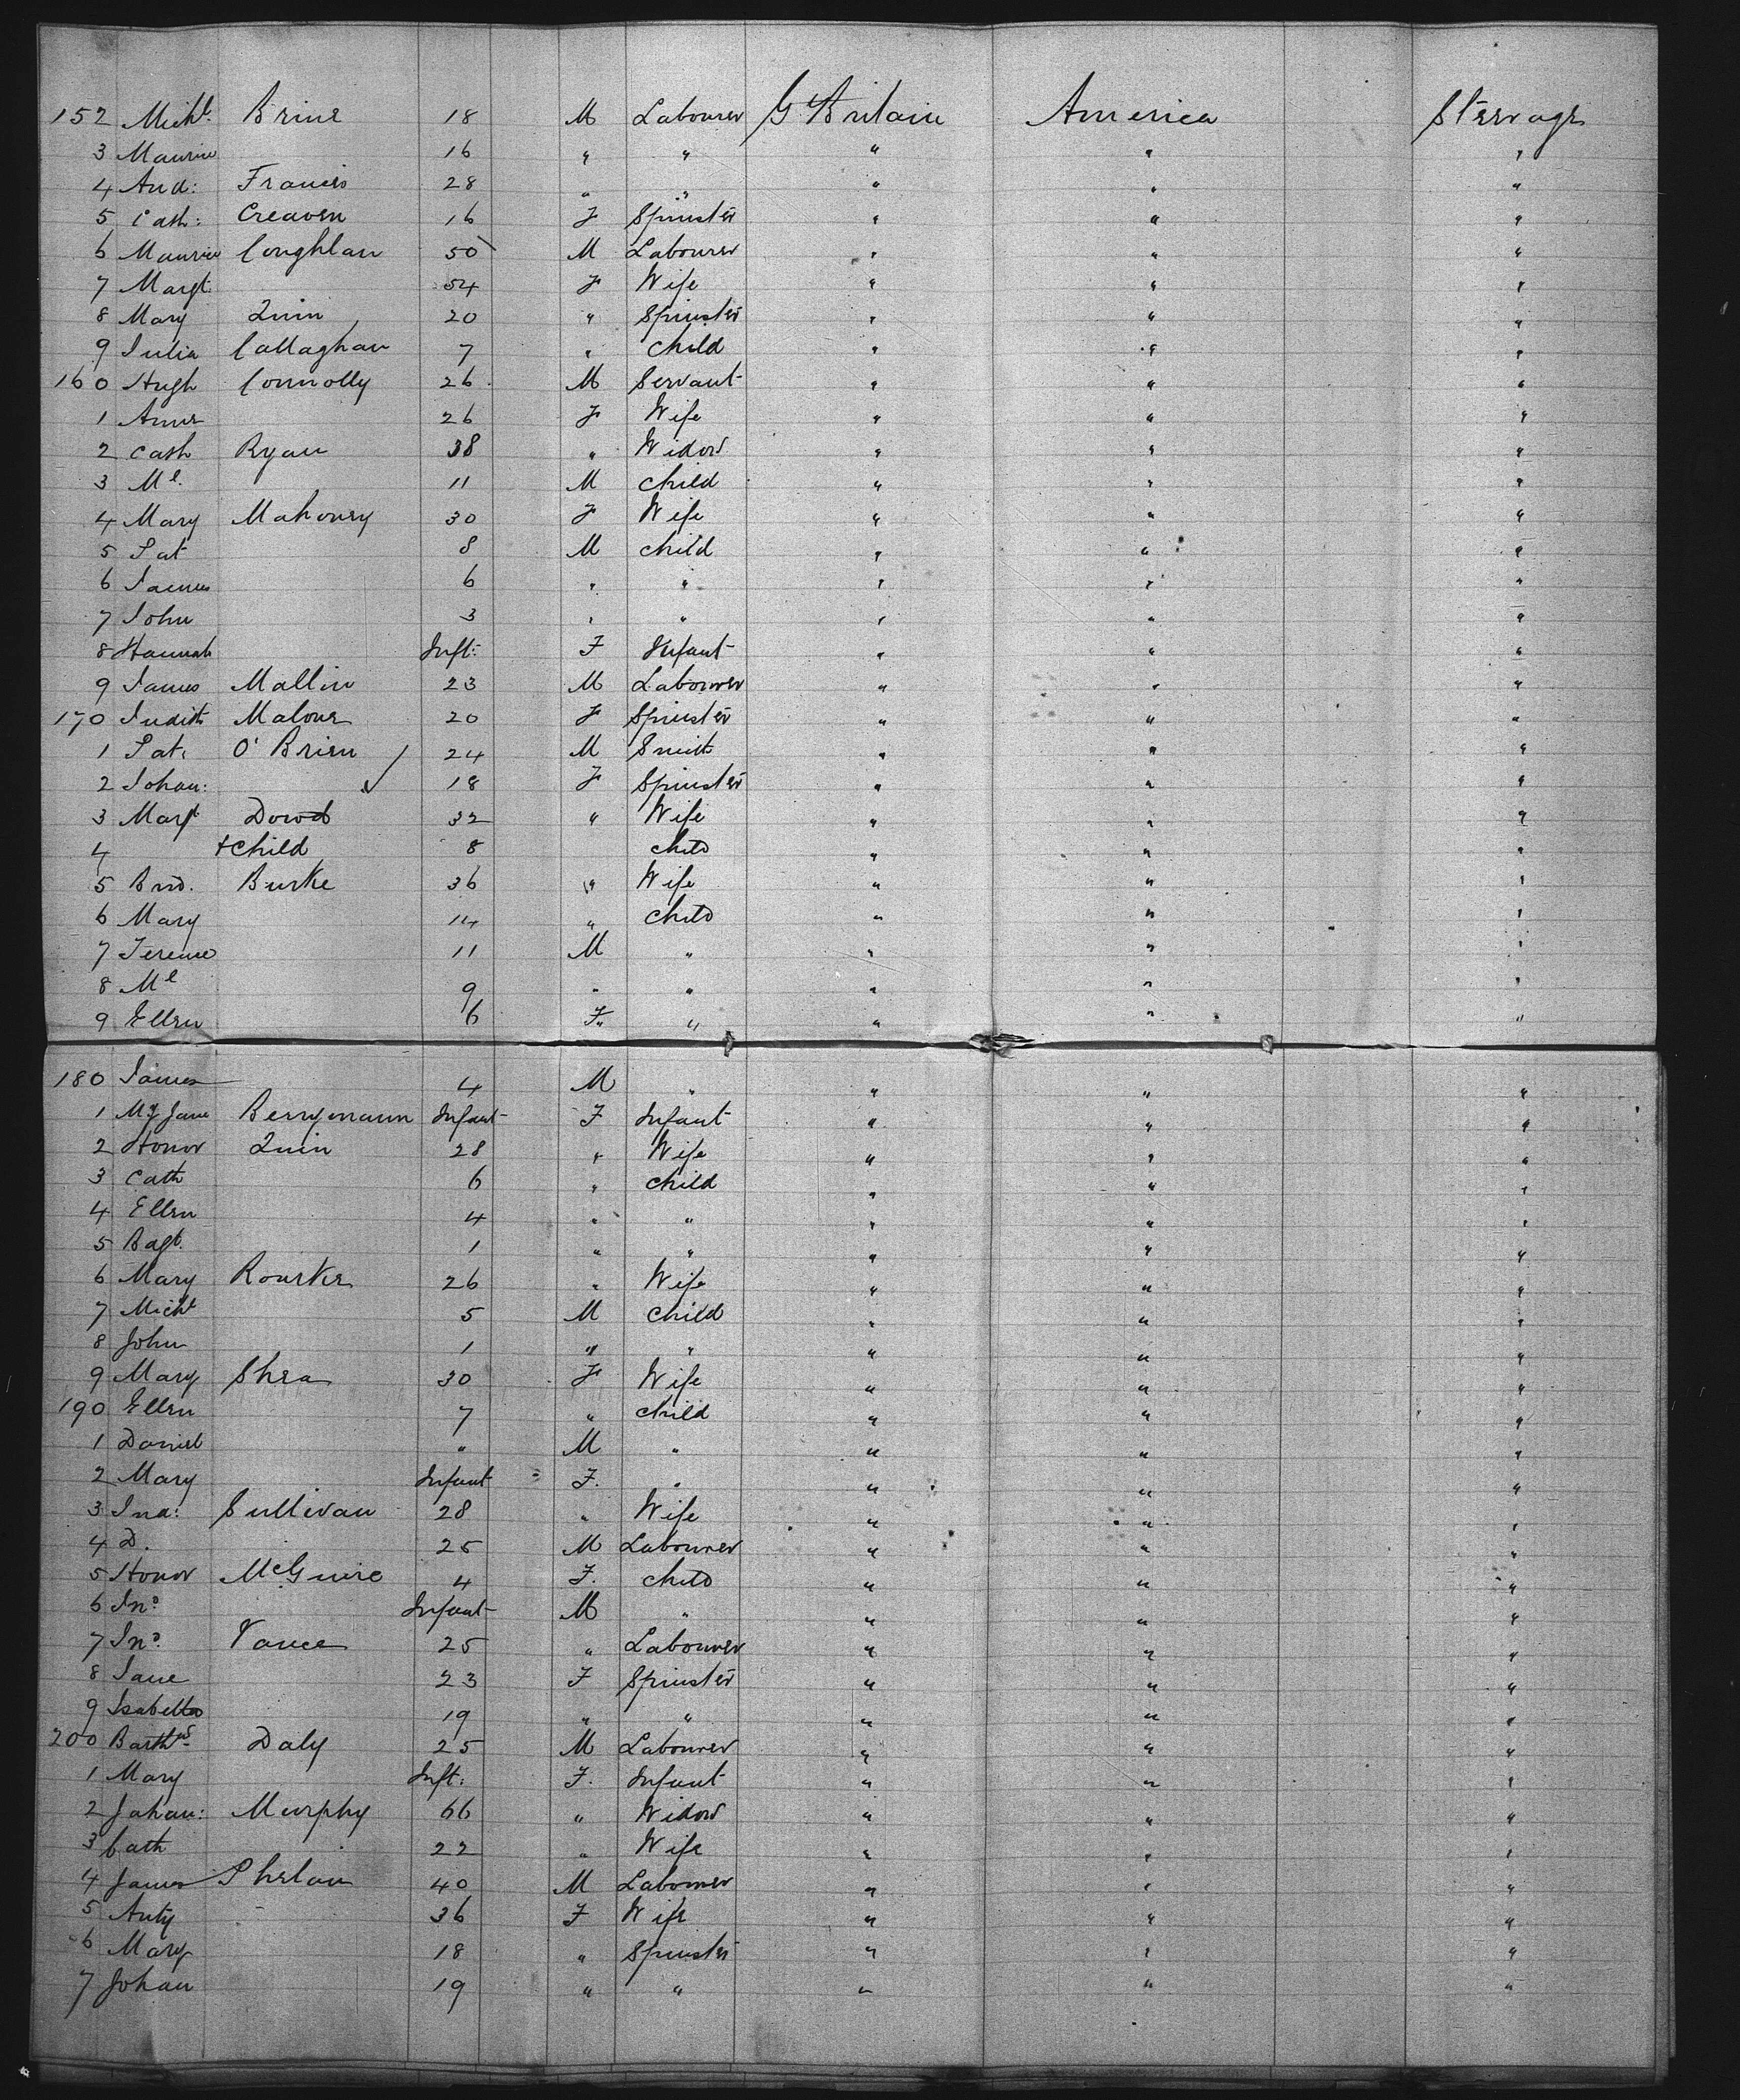 152 Michl. Brine 18 M Labourer Gt Britain America Steerage
3 Maurice 16 " " " " "
4 And: Francis 28 " " " " "
5 Cath: Creaven 16 F Spinster " " "
6 Maurice Coughlan 50 M Labourer " " "
7 Margt. 54 F Wife " " "
8 Mary Quin 20 " Spinster " " "
9 Julia Callaghan 7 " Child " " "
160 Hugh Connolly 26 M Servant " " "
1 Anne 26 F Wife " " "
2 Cath Ryan 38 " Widow " " "
3 Ml. 11 M Child " " "
4 Mary Mahoney 30 F Wife " " "
5 Pat 8 M Child " " "
6 James 6 " " " " "
7 John 3 " " " " "
8 Hannah Inft: F Infant " " "
9 James Mallin 23 M Labourer " " "
170 Judith Malone 20 F Spinster " " "
1 Pat: O'Brien 24 M Smith " " "
2 Johan: 18 F Spinster " " "
3 Margt Dowd 32 " Wife " " "
4 + Child 8 Child " " "
5 Brid. Burke 36 " Wife " " "
6 Mary 14 " Child " " "
7 Terence 11 M " " " "
8 Ml 9 " " " " "
9 Ellen 6 F " " " "
180 James 4 M " " " "
1 My Jane Berrymann Infant F Infant " " "
2 Honor Quin 28 " Wife " " "
3 Cath 6 " Child " " "
4 Ellen 4 " " " " "
5 1 " " " " "
6 Mary Rourke 26 " Wife " " "
7 Michl 5 M Child " " "
8 John 1 " " " " "
9 Mary Shea 30 F Wife " " "
190 Ellen 7 " Child " " "
1 Daniel " M " " " "
2 Mary Infant F. " " " "
3 Sullivan 28 " Wife " " "
4 D. 25 M Labourer " " "
5 Honor McGuire 4 F. Child " " "
6 Jno. Infant M " " " "
7 Jno. Vance 25 " Labourer " " "
8 Jane 23 F Spinster " " "
9 Isabella 19 " " " " "
200 Barthw. Daly 25 M Labourer " " "
1 Mary Inft: F. Infant " " "
2 Johan: Murphy 66 " Widow " " "
3 Cath 22 " Wife " " "
4 James Phelan 40 M Labourer " " "
5 Anty 36 F Wife " " "
6 Mary 18 " Spinster " " "
7 Johan 19 " " " " "